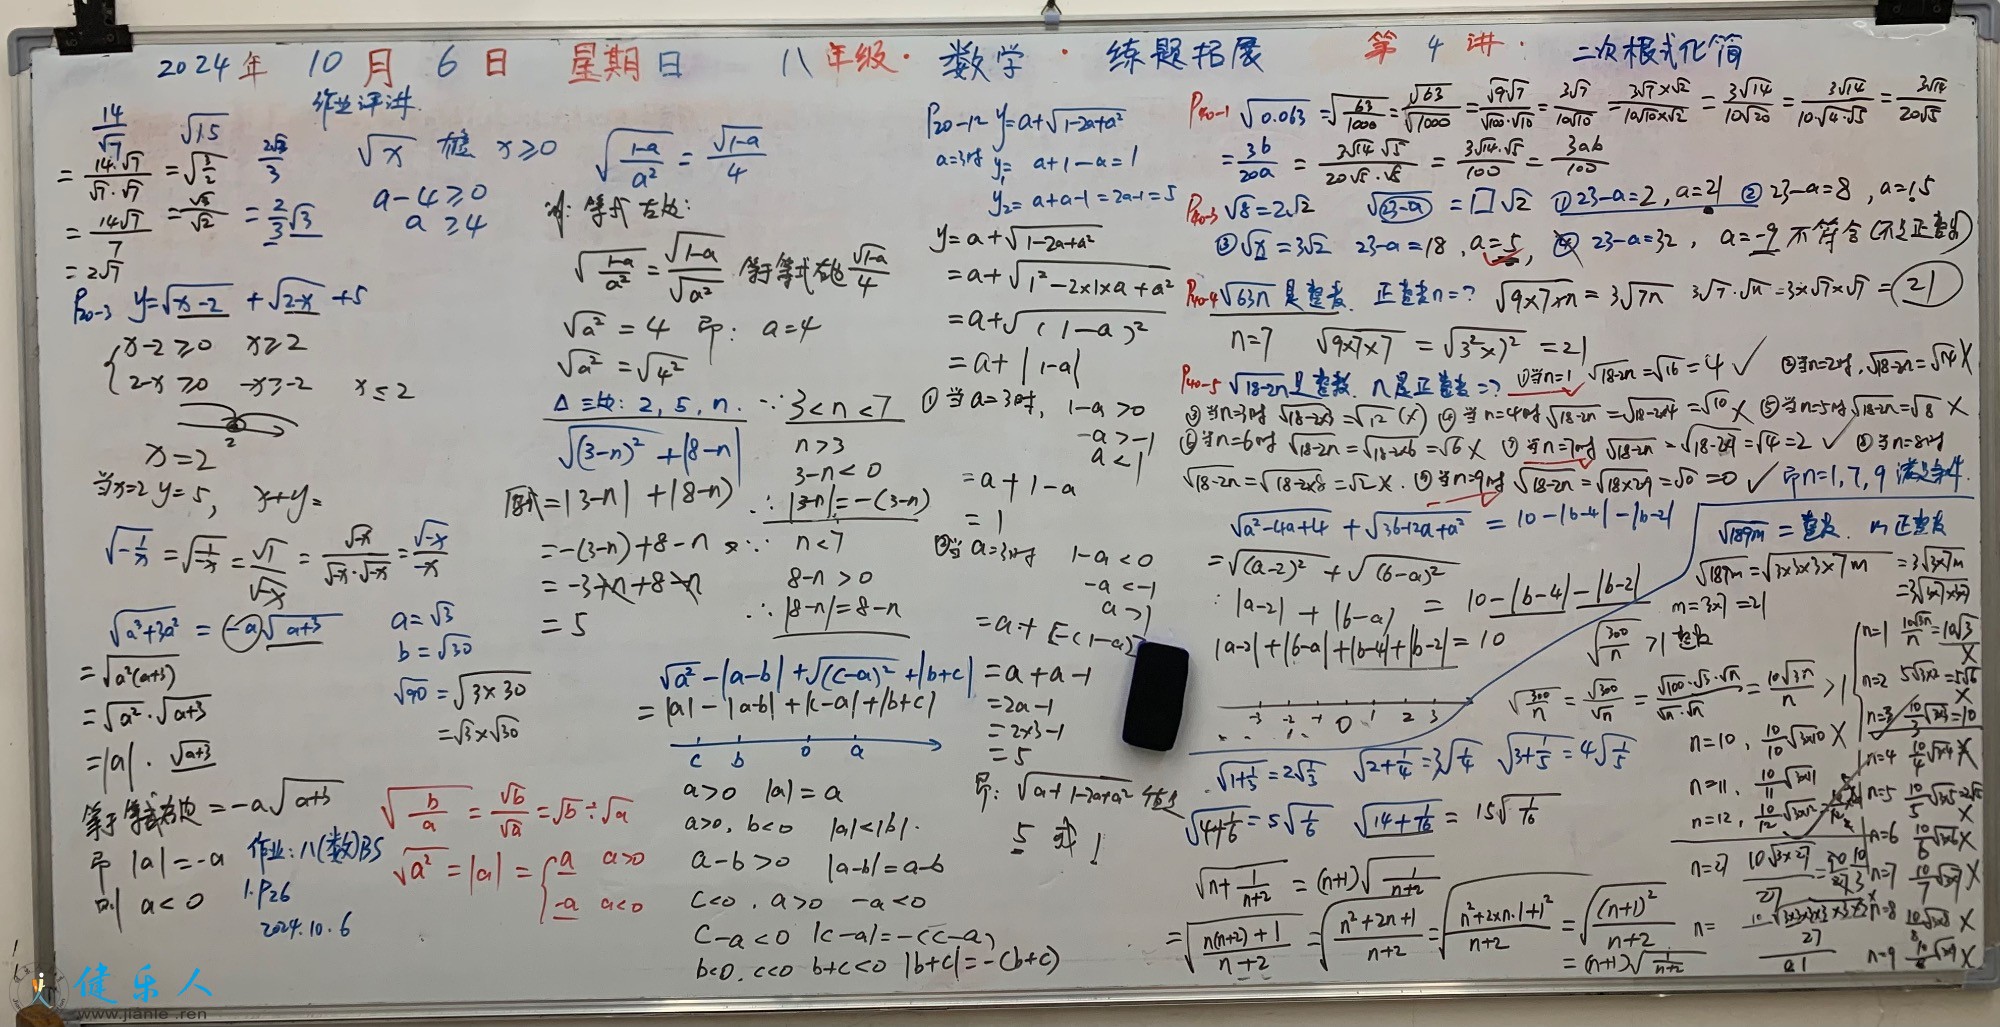 2024年 10月 6日 星期日 八年级·数学·练题拓展 第4讲: 二次根式化简
作业评讲
14/√7
= 14·√7/√7·√7
= 14√7/7
= 2√7
√15
= 2/3√3
√x x≥0
a-4≥0
a≥4
P20-3 y=√x-2 + √2-x +5
x-2≥0 x≥2
2-x≥0 -x≥-2 x≤2
2
x=2
当x=2 y=5, x+y=
√-1/x = √1/-x = √1/√-x = √-x/√-x·√-x = √-x/-x
√a³+3a² = -a√a+3
=√a²(a+3)
=√a²·√a+3
=|a|·√a+3
等于等式右边=-a√a+3
即 |a|=-a
则 a<0
a=√3
b=√30
√90=√3×30
=√3×√30
作业:八(数)BS
1.P26
2024.10.6
√b/a = √b/√a = √b÷√a
√a²=|a|= a a>0
-a a<0
√1-a/a² = √1-a/4
等式左边:
√1-a/a² = √1-a/√a² 等于等式右边 √1-a/4
√a²=4 即: a=4
√a²=√4²
△三边: 2, 5, n. ∵ 3<n<7
√(3-n)² + |8-n|
n>3
3-n<0
原式=|3-n|+|8-n| ∴ |3-n|=-(3-n)
=-(3-n)+8-n ∵ n<7
=-3+n+8-n 8-n>0
=5 ∴ |8-n|=8-n
√a²-|a-b|+√(c-a)²+|b+c|
=|a|-|a-b|+|c-a|+|b+c|
c b 0 a
a>0 |a|=a
a>0, b<0 |a|<|b|.
a-b>0 |a-b|=a-b
c<0, a>0 -a<0
c-a<0 |c-a|=-(c-a)
b<0, c<0 b+c<0 |b+c|=-(b+c)
P20-12 y=a+√1-2a+a²
a=3时 y₁= a+1-a=1
y₂=a+a-1=2a-1=5
y=a+√1-2a+a²
=a+√1²-2×1×a+a²
=a+√(1-a)²
=a+|1-a|
①当a=3时, 1-a>0
-a>-1
a<1
=a+1-a
=1
②当a=3时 1-a<0
-a<-1
a>1
=a+[-(1-a)]
=a+a-1
=2a-1
=2×3-1
=5
即: √a+1-2a+a²
5 或 1
P40-1 √0.063=√63/1000=√63/√1000=√9√7/√100·√10=3√7/10√10=3√7×√2/10√10×√2=3√14/10√20=3√14/10·√4·√5=3√14/20√5
=3b/20a=3√14·√5/20√5·√5=3√14·√5/100=3ab/100
P40-3 √8=2√2 √23-a=□√2 ①23-a=2, a=21 ②23-a=8, a=15
③√x=3√2 23-a=18, a=5, ④ 23-a=32, a=-9 不符合(不是正整数)
P40-4 √63n 是整数. 正整数n=? √9×7×n=3√7n 3√7·√n=3×√7×√7=21
n=7 √9×7×7=√3²×7²=21
P40-5 √18-2n是整数, n是正整数=? ①当n=1 √18-2n=√16=4 ✓ ②当n=2时, √18-2n=√14 X
③当n=3时 √18-2×3=√12 (X) ④当n=4时 √18-2n=√18-2×4=√10 X ⑤当n=5时 √18-2n=√8 X
⑥当n=6时 √18-2n=√18-2×6=√6 X ⑦当n=7时 √18-2n=√18-2×7=√4=2 ✓ ⑧当n=8时
√18-2n=√18-2×8=√2 X. ⑨当n=9时 √18-2n=√18×2×9=√0=0 ✓ 即n=1,7,9 满足条件.
√a²-4a+4 + √36-12a+a² = 10-|b-4|-|b-2|
=√(a-2)² + √(6-a)²
∵ |a-2| + |6-a| = 10-|b-4|-|b-2|
|a-2|+|6-a|+|b-4|+|b-2|=10
-3 -2 -1 0 1 2 3
√189m=整数. m正整数
√189m=√3×3×3×7m =3√3×7m
m=3×7=21
√300/n >1 整数
√300/n=√300/√n=√100·√3·√n/√n·√n=10√3n/n>1
n=10, 10/10√3×10 X
n=11, 10/11√3×11
n=12, 10/12√3×12
n=27 10√3×27/27
n=1 10√3n/n=10√3 X
n=2 5√3×2=5√6 X
n=3 10/3√3×3=10
n=4 10/4√3×4 X
n=5 10/5√3×5=2√15 X
n=6 10/6√3×6 X
n=7 10/7√3×7 X
n=8 10/8√3×8 X
n=9 X
√1+1/3=2√1/3 √2+1/4=3√1/4 √3+1/5=4√1/5
√4+1/6=5√1/6 √14+1/16=15√1/16
√n+1/n+2=(n+1)√1/n+2
=√n(n+2)+1/n+2=√n²+2n+1/n+2=√n²+2×n·1+1²/n+2=√(n+1)²/n+2
=(n+1)√1/n+2
健乐人
www.jianle.ren